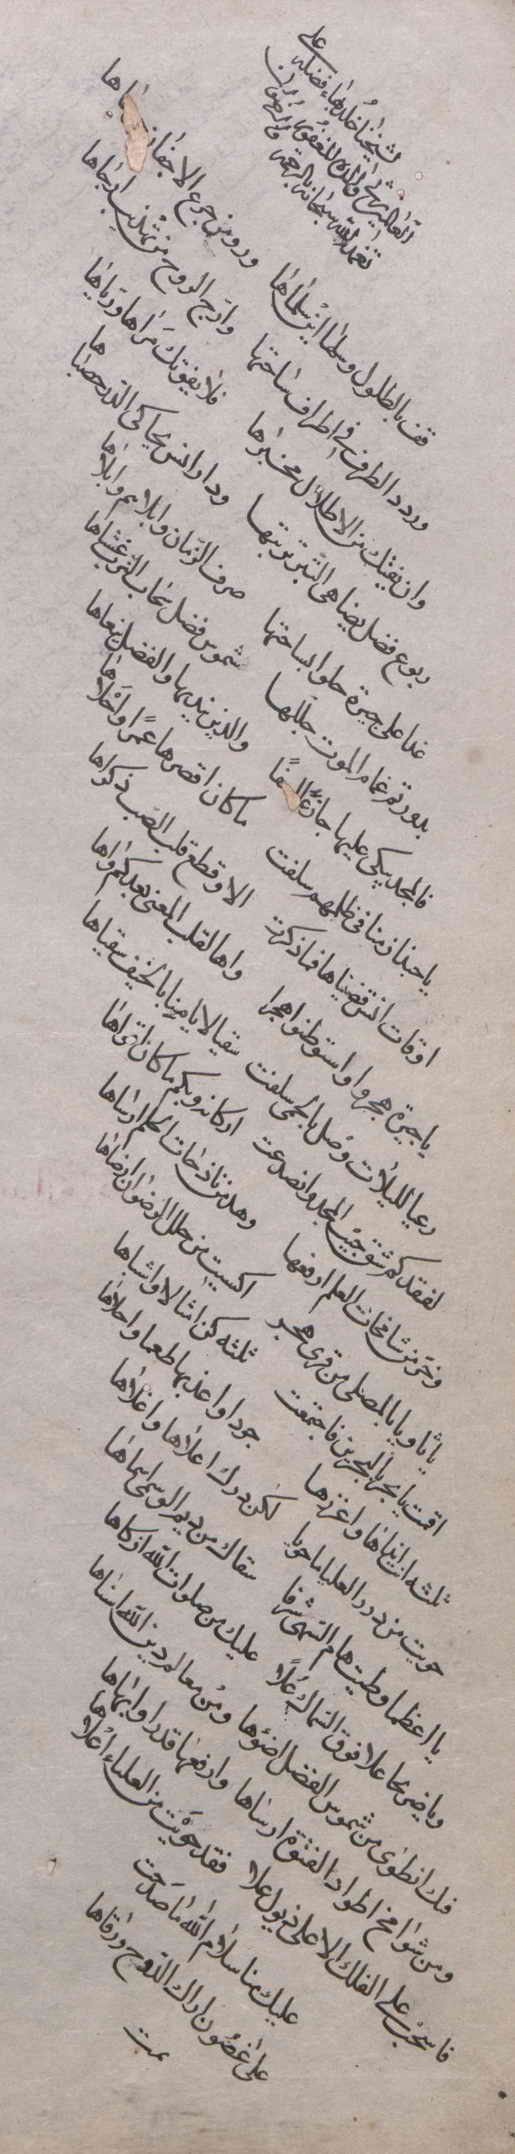 لشيخنا خلد بهاء فضله على
العالمين في والده المغفور
تغمده الله سبحانه بالرحمة والرضوان
قف بالطلول وسلها اين سلماها ورو من جرع الاجفان
وردد الطرف في اطراف ساحتها وارّج الروح من ارجاها
وان يفتك من الاطلال مخبرها فلا يفوتك مراها ورياها
ربوع فضل يضاهي التبر تربتها ودار انس يحاكي الدر حصباها
عدا على جيرة حلوا بساحتها صرف الزمان فابلاهم وابلاها
بدور تم غمام الموت جللها شموس فضل سحاب الترب غشاها
فالمجد يبكي عليها جازعا اسفا والدين يندبها والفضل ينعاها
يا حبذا ازمنا في ظلهم سلفت ما كان اقصرها عمرا واحلاها
اوقات انس قضيناها فما ذكرت الا وقطع قلب الصب ذكراها
يا جيرة هجروا واستوطنوا هجرا واها لقلب المعنى بعدكم واها
رعيا لليلات وصل بالحمى سلفت سقيا لايامنا بالخيف سقياها
لفقدكم شق جيب المجد وانصدعت اركانه وبكم ما كان اقواها
وخر من شامخات العلم ارفعها وهد من باذخات الحلم ارساها
يا ثاويا بالمصلى من قرى هجر اكسيت من حلل الرضوان ارضاها
اقمت يا بحر بالبحرين فاجتمعت ثلثة كن امثالا واشباها
ثلثة انت انداها واغزرها جودا واعذبها طعما واحلاها
حويت من درر العلياء ما حويا لكن درك اعلاها واغلاها
يا اعظما وطئت هام السهى شرفا سقاك من ديم الوسمي اسماها
ويا ضريحا علا فوق السماك علا عليك من صلوات الله ازكاها
فيك انطوى من شموس الفضل اضوؤها ومن معالم دين الله اسناها
ومن شوامخ اطواد الفتوة ارساها وارفعها قدرا وابهاها
فاسحب على الفلك الاعلى ذيول علا فقد حويت من العلياء اعلاها
عليك منا سلام الله ما صدحت
على غصون اراك الدوح ورقاها
تمت